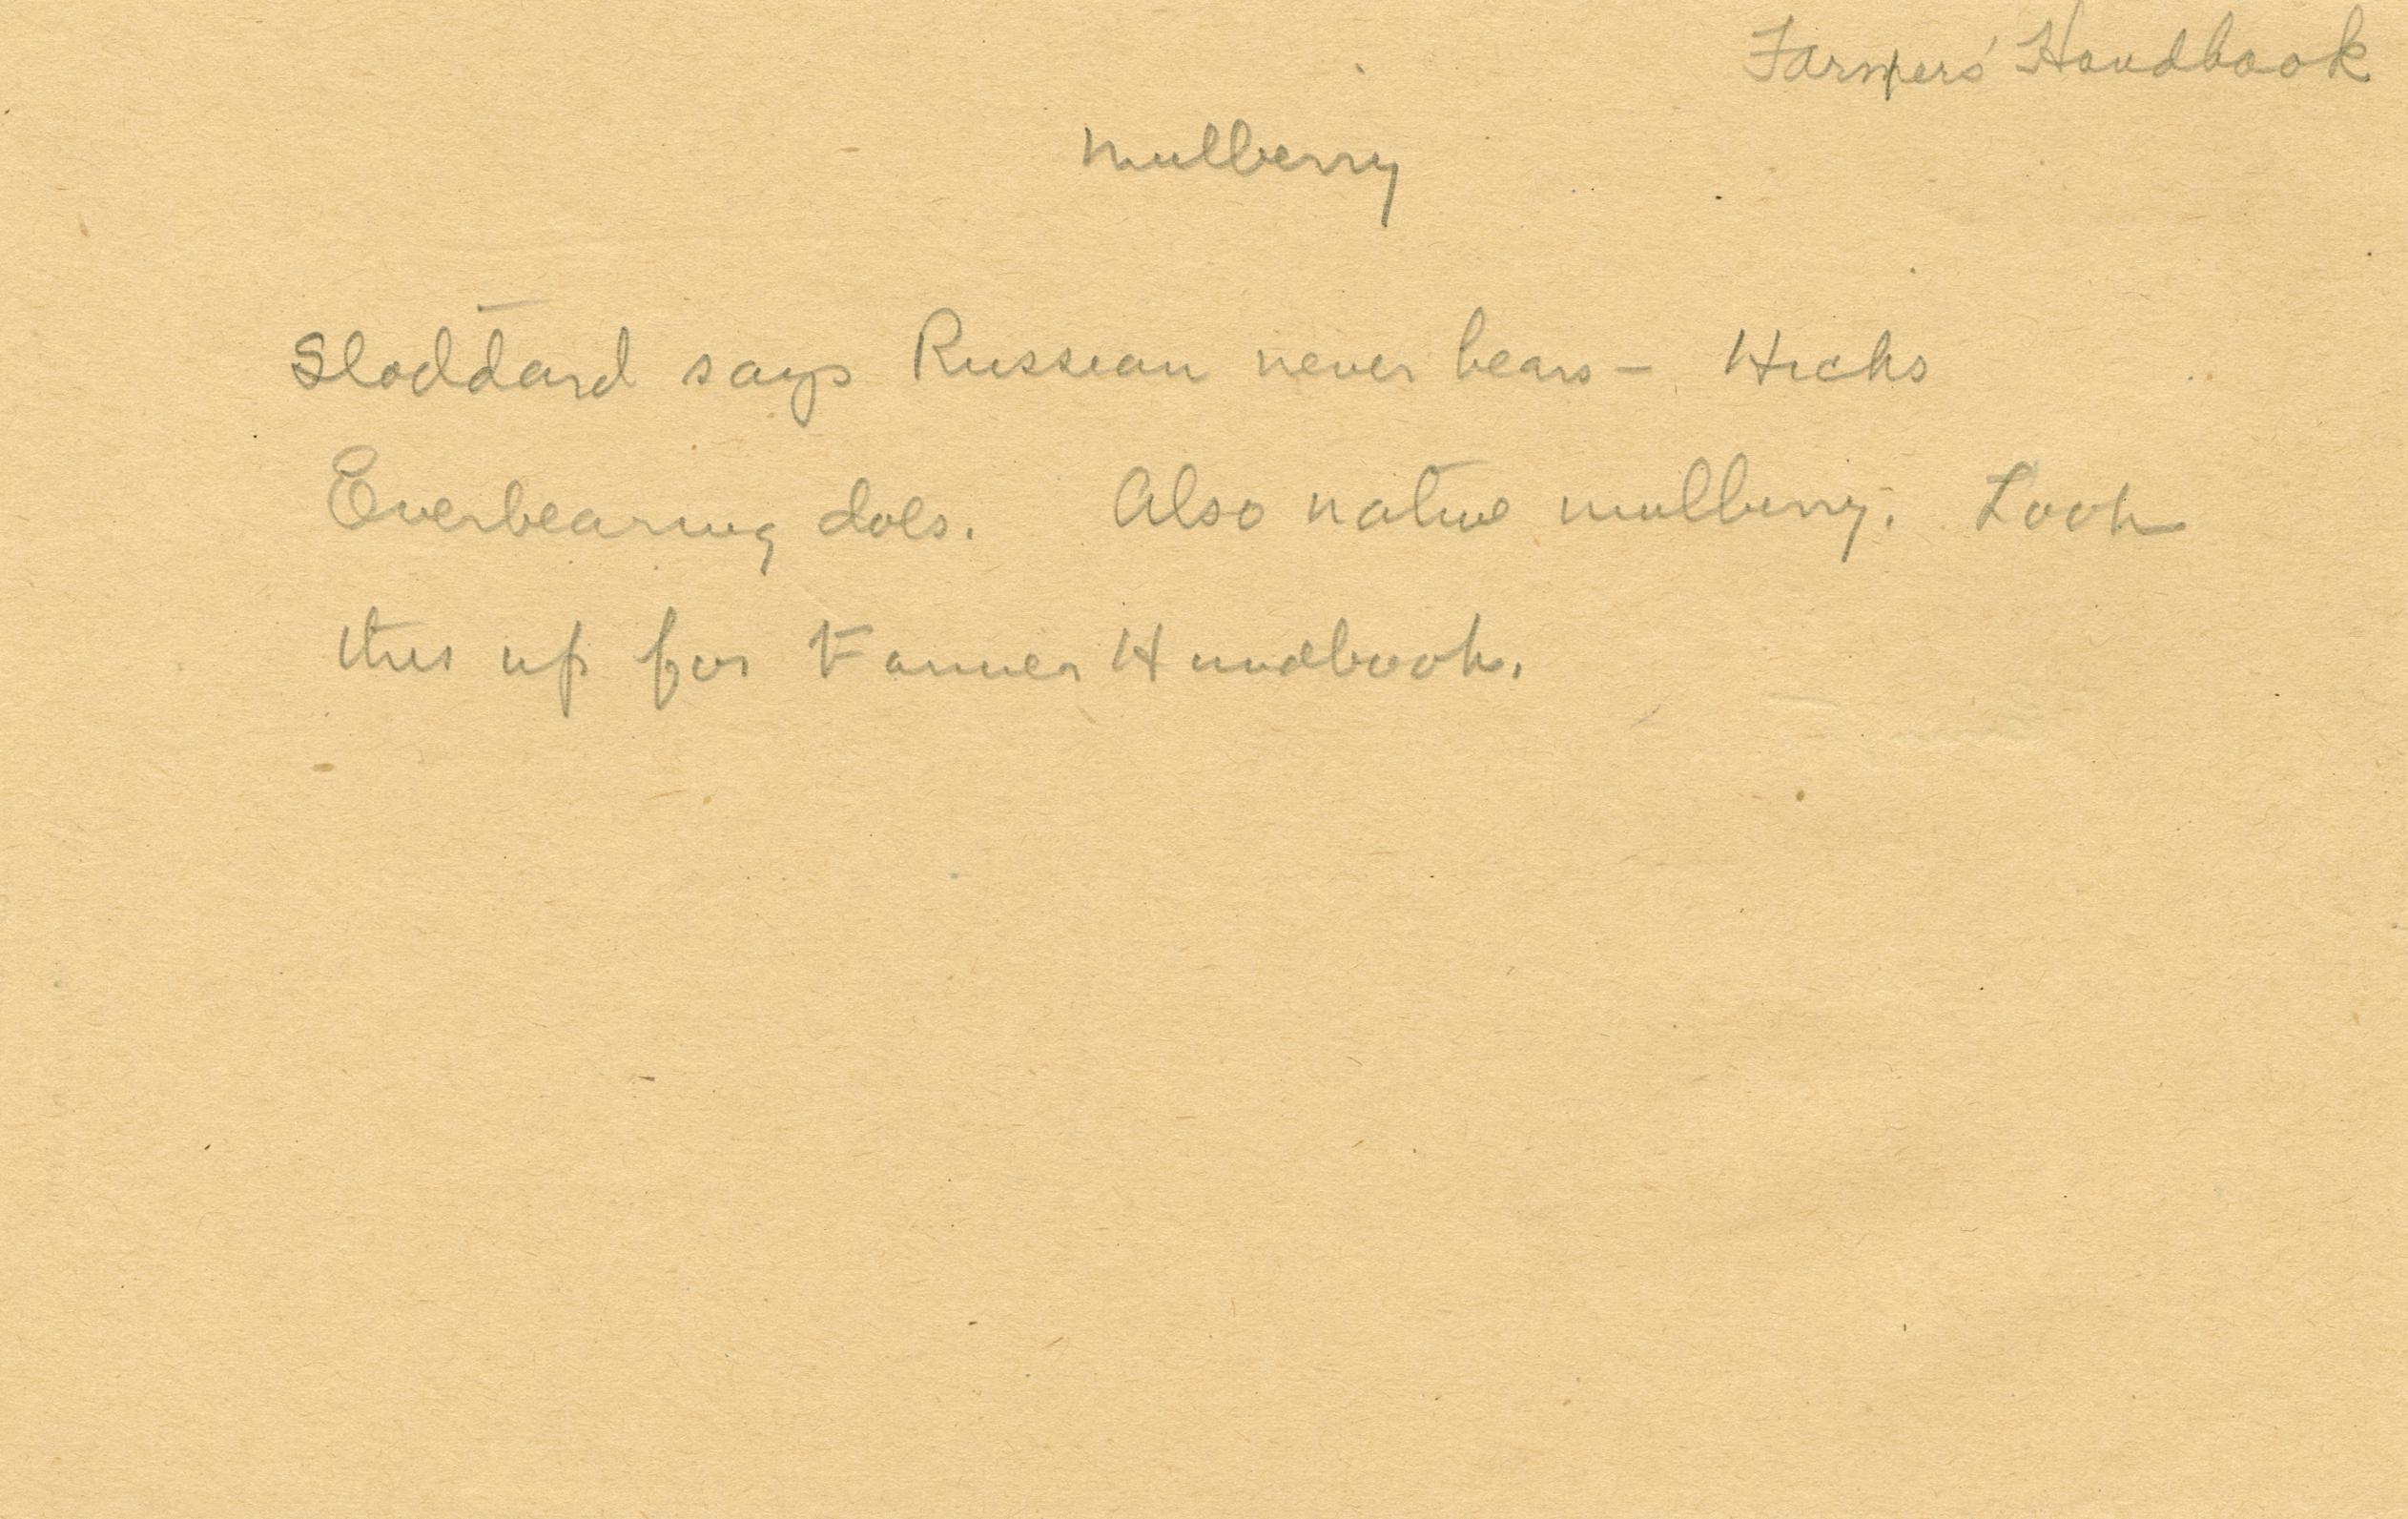 Farmers' Handbook
Mulberry
Stoddard says Russian never bears - Hicks
Everbearing does. Also native mulberry. Look
this up for Farmer Handbook.